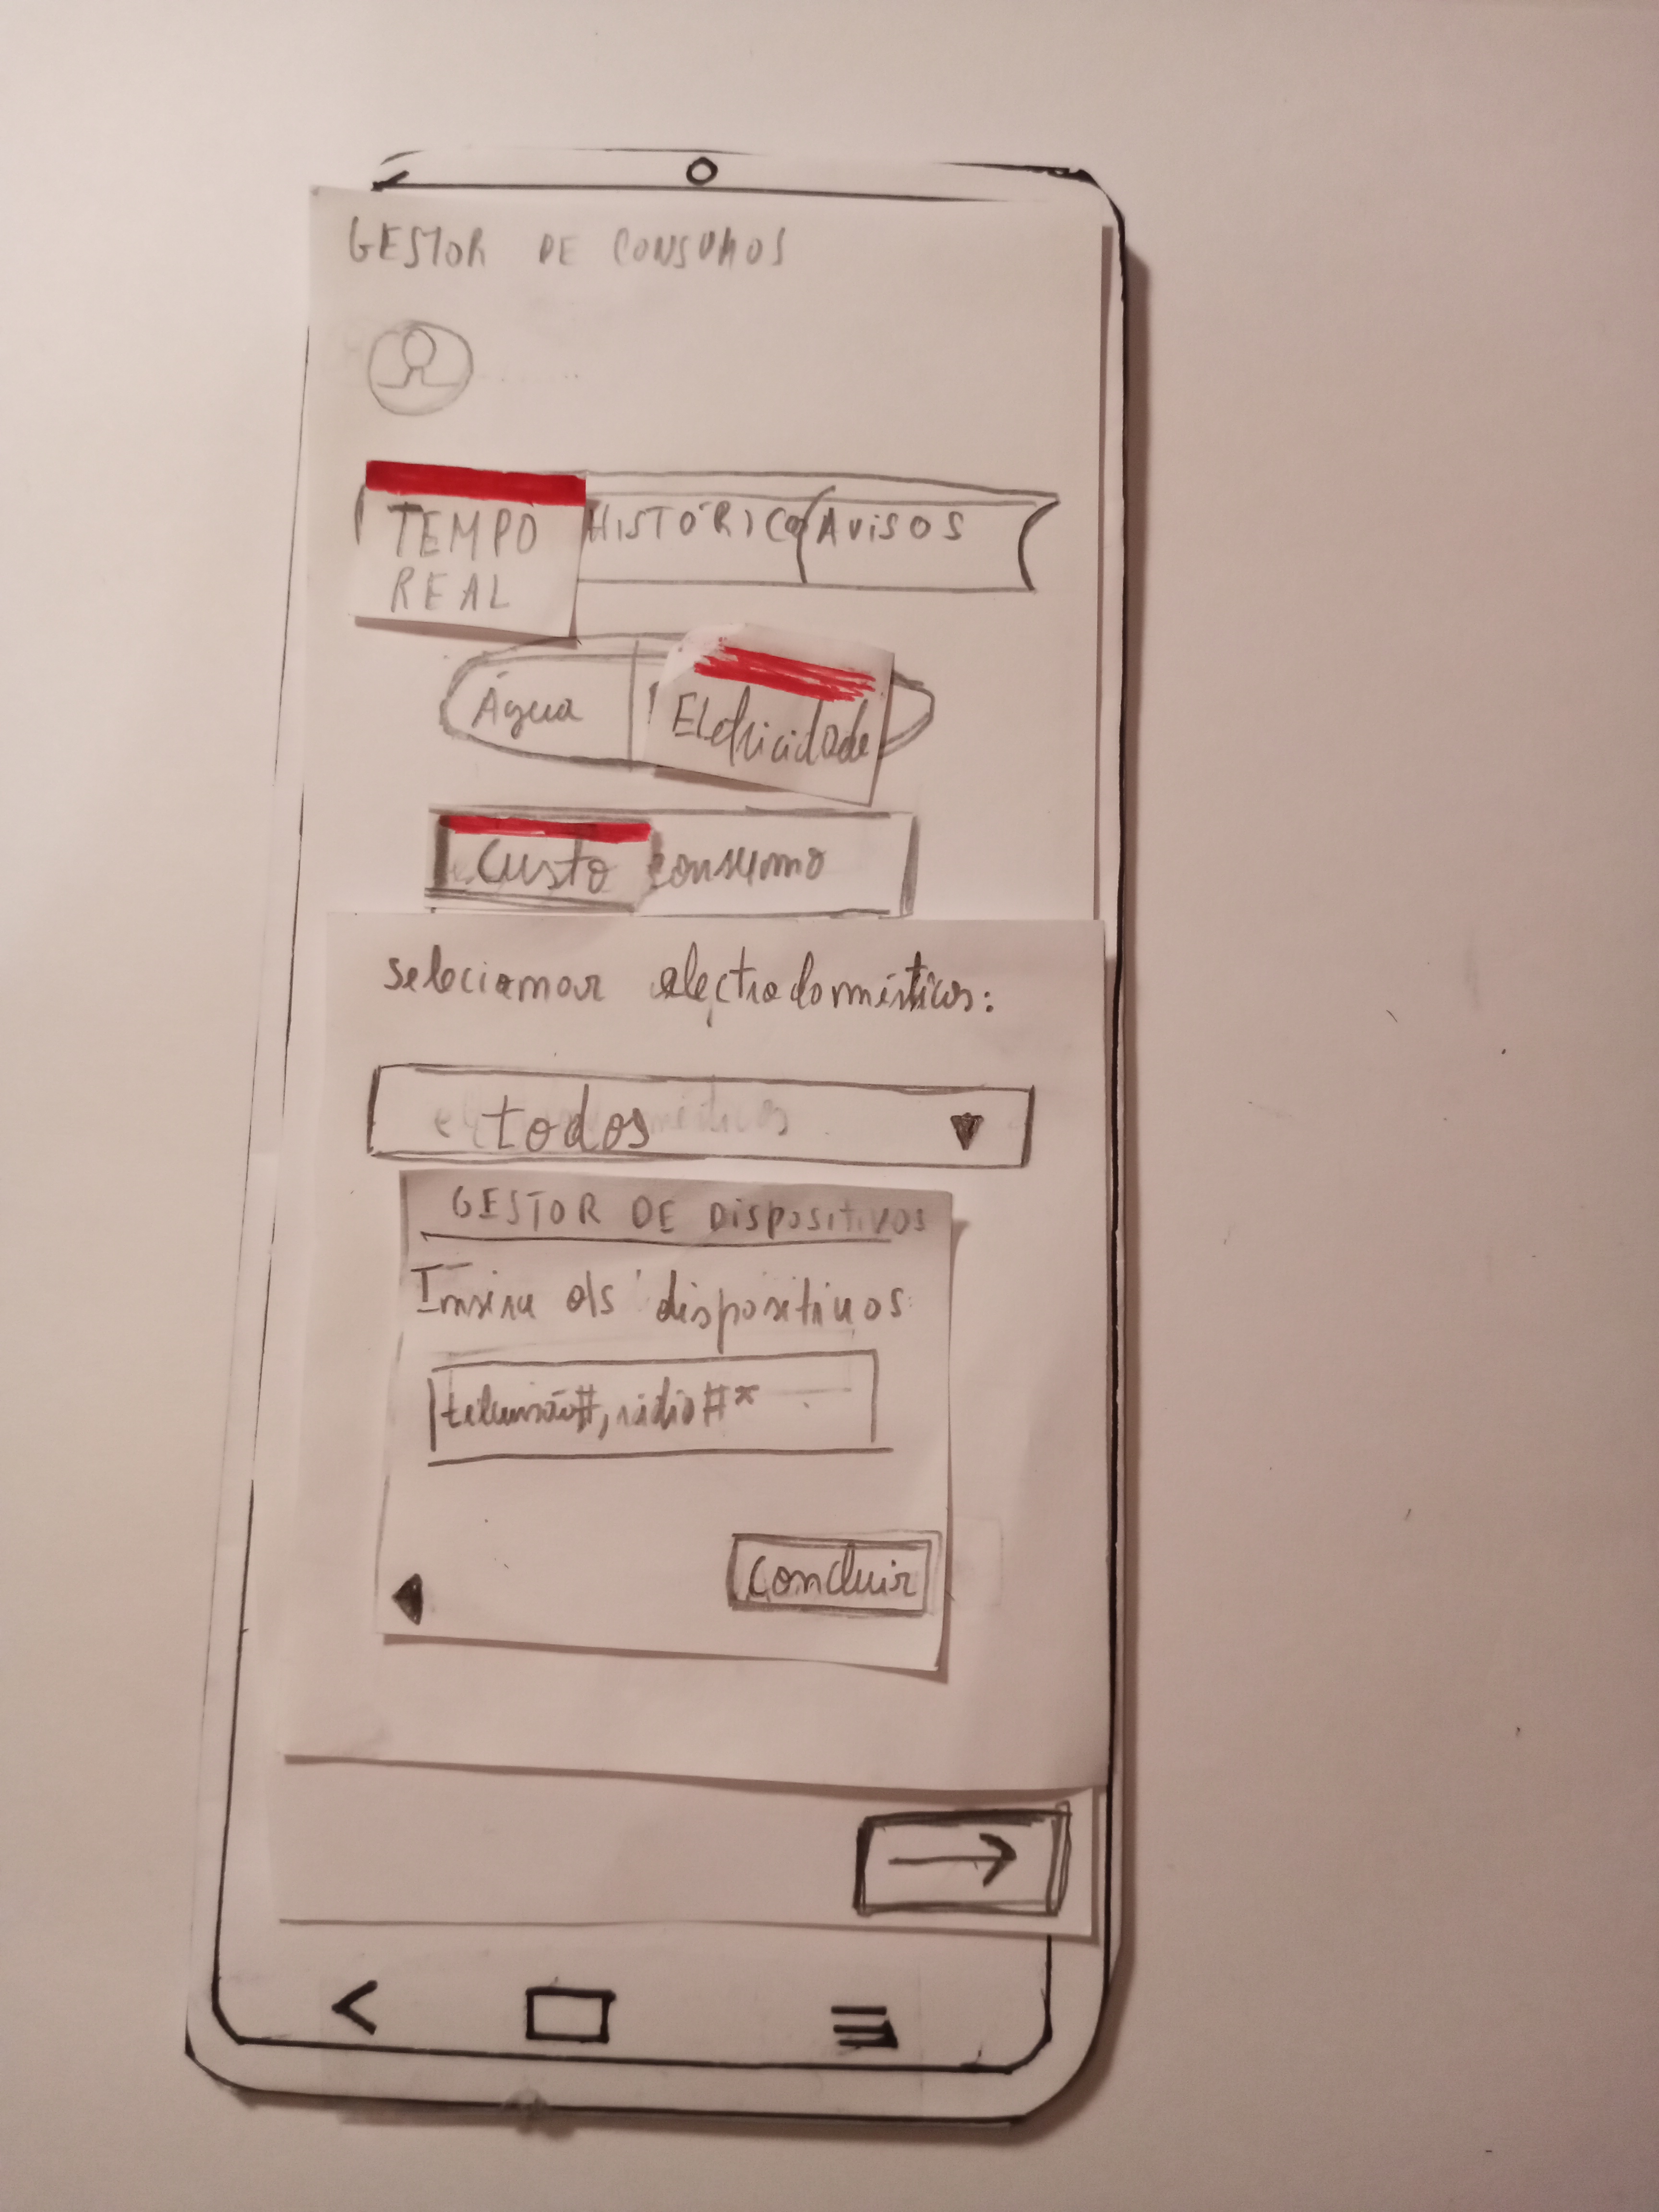 GESTOR DE CONSUMOS
TEMPO REAL
HISTÓRICO
AVISOS
Água
Eletricidade
Custo
consumo
selecionar electrodomésticos:
todos
GESTOR DE DISPOSITIVOS
Insira os dispositivos
televisão#, rádio#*
Concluir